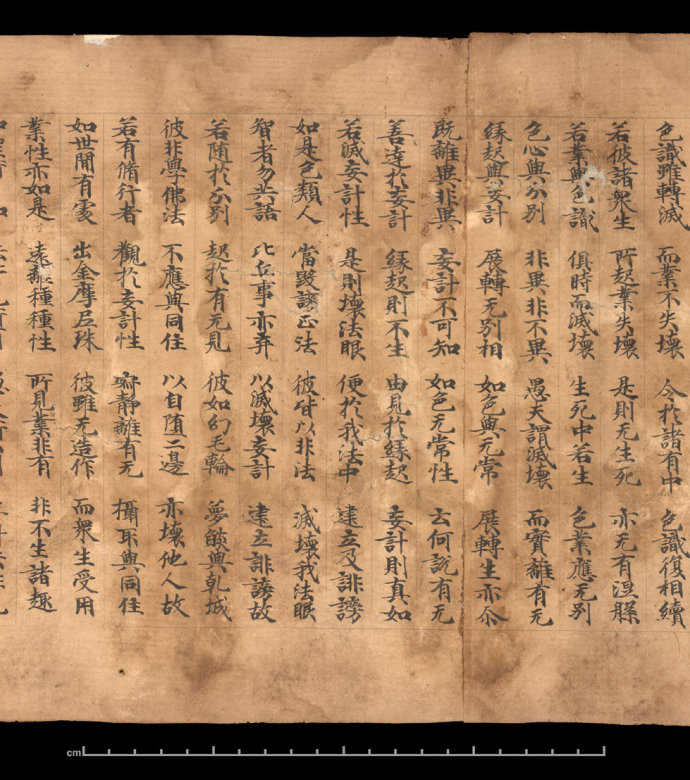 色識雖轉滅 而業不失壞 令於諸有中 色識復相續
若彼諸衆生 所起業失壞 是則无生死 亦无有涅槃
若業與色識 俱時而滅壞 生死中若生 色業應无別
色心與分別 非異非不異 愚夫謂滅壞 而實離有无
緣起與妄計 展轉无別相 如色與无常 展轉生亦尒
既離異非異 妄計不可知 如色无常性 云何說有无
善達於妄計 緣起則不生 由見於緣起 妄計則真如
若滅妄計性 是則壞法眼 便於我法中 建立及誹謗
如是色類人 當毀謗正法 彼皆以非法 滅壞我法眼
智者勿共語 比丘事亦弃 以滅壞妄計 建立誹謗故
若随於分別 起於有无見 彼如幻毛輪 夢燄與乾城
彼非學佛法 不應與同住 以自墮二邊 亦壞他人故
若有脩行者 觀於妄計性 寂静離有无 攝取與同住
如世閒有處 出金摩尼珠 彼雖无造作 而衆生受用
業性亦如是 遠離種種性 所見業非有 非不生諸趣